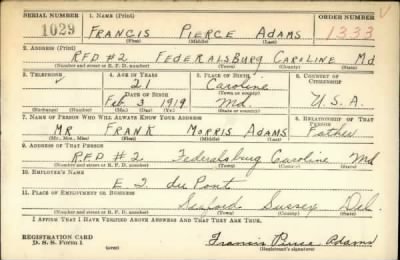 SERIAL NUMBER 1. NAME (Print) ORDER NUMBER
1029 FRANCIS PIERCE ADAMS 1333
(First) (Middle) (Last)
2. ADDRESS (Print)
RFD #2 FEDERALSBURG CAROLINE Md
(Number and street or R. F. D. number) (Town) (County) (State)
3. TELEPHONE 4. AGE IN YEARS 5. PLACE OF BIRTH 6. COUNTRY OF CITIZENSHIP
21 Caroline
DATE OF BIRTH (Town or county)
Feb 3 1919 Md. U.S.A.
(Exchange) (Number) (Mo.) (Day) (Yr.) (State or country)
7. NAME OF PERSON WHO WILL ALWAYS KNOW YOUR ADDRESS 8. RELATIONSHIP OF THAT PERSON
MR FRANK MORRIS ADAMS Father
(Mr., Mrs., Miss) (First) (Middle) (Last)
9. ADDRESS OF THAT PERSON
RFD #2 Federalsburg Caroline Md
(Number and street or R. F. D. number) (Town) (County) (State)
10. EMPLOYER'S NAME
E I du Pont
11. PLACE OF EMPLOYMENT OR BUSINESS
Seaford Sussex Del.
(Number and street or R. F. D. number) (Town) (County) (State)
I AFFIRM THAT I HAVE VERIFIED ABOVE ANSWERS AND THAT THEY ARE TRUE.
REGISTRATION CARD
D. S. S. Form 1 (over) Francis Pierce Adams
(Registrant's signature)